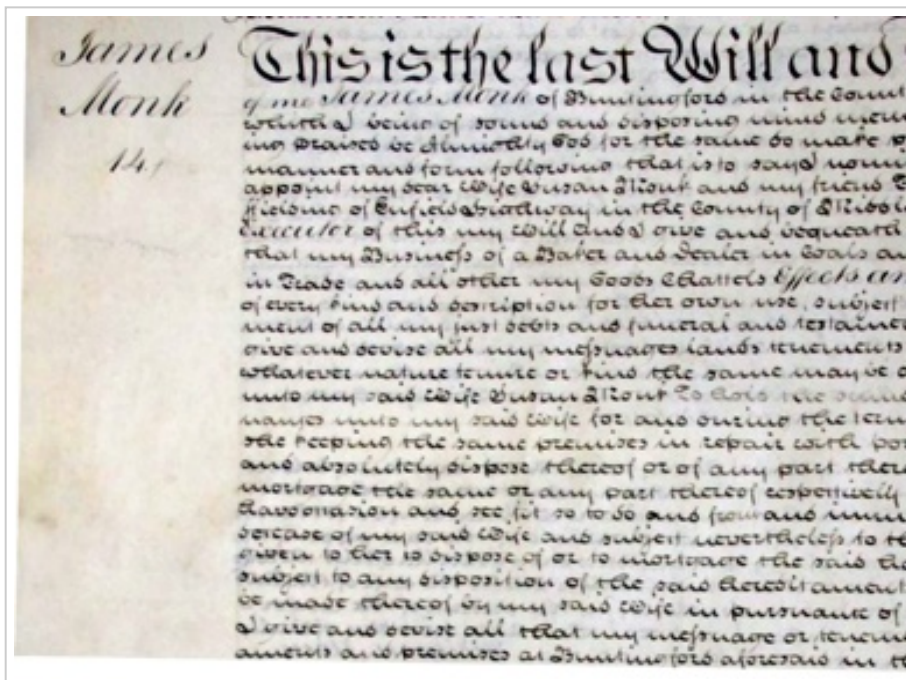 James
Monk
14
This is the last Will and
of me James Monk of Buntingford in the Count
being of sound and disposing mind mem
ing praised be Almighty God for the same do make
manner and form following that is to say I nomi
appoint my dear Wife Susan Monk and my friend
ffielding of Enfield Highway in the County of Middl
Executor of this my Will And I give and bequeath
that my Business of a Baker and Dealer in Coals an
in Trade and all other my Goods Chattels Effects an
of every kind and description for her own use subject
ment of all my just debts and funeral and testamen
give and devise all my messuages lands tenements
whatever nature tenure or kind the same may be
unto my said Wife Susan Monk To hold the
unto my said Wife for and during the term
she keeping the same premises in repair with po
and absolutely dispose thereof or of any part there
mortgage the same or any part thereof respectively
have occasion and see fit so to do and from and imm
decease of my said Wife and subject nevertheless to t
given to her to dispose of or to mortgage the said he
subject to any disposition of the said hereditament
be made thereof by my said Wife in pursuance of
I give and devise all that my messuage or tenem
aments and premises at Buntingford aforesaid in t